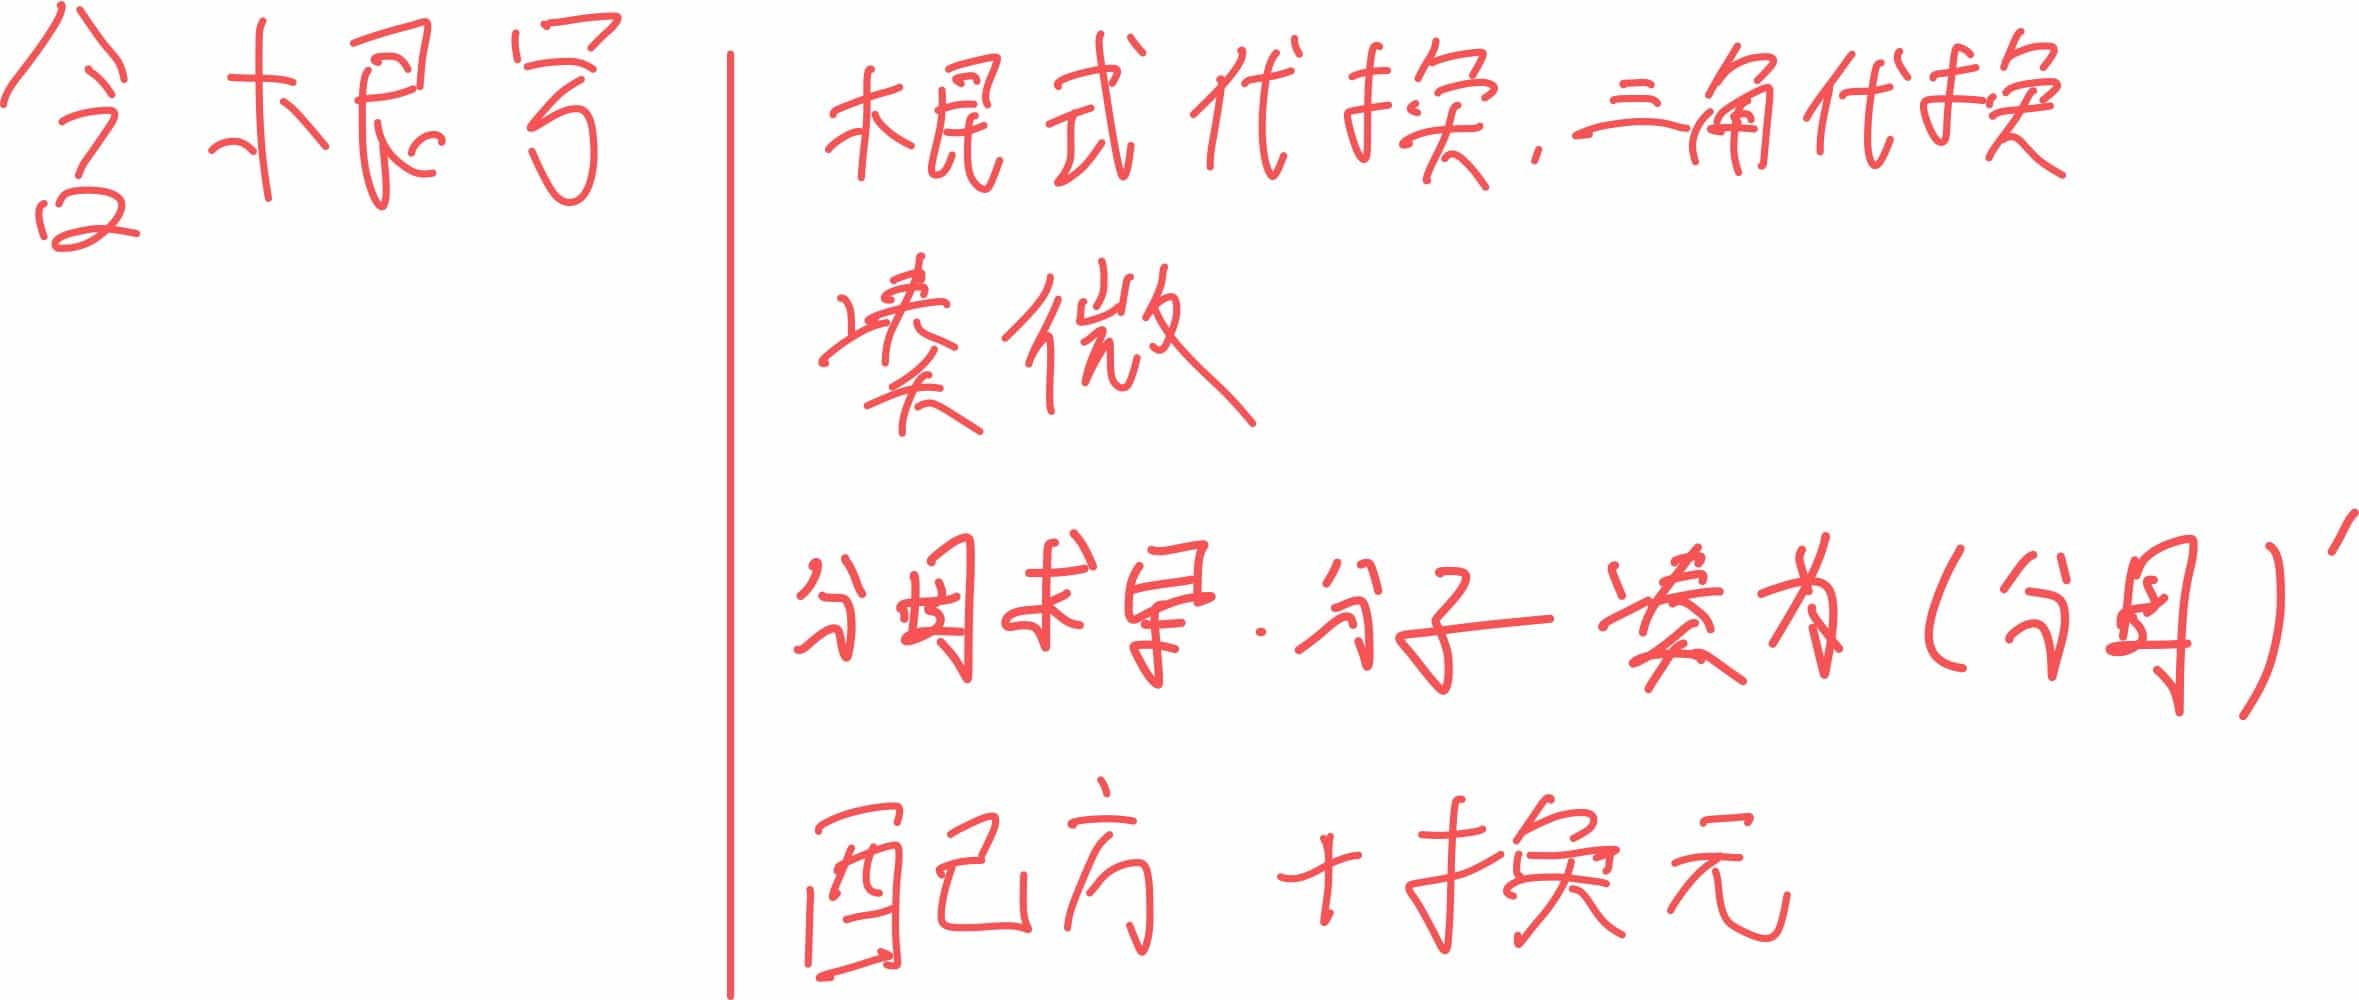 含根号
根式代换.三角代换
凑微
分母求导.分子凑为(分母)'
配方+换元